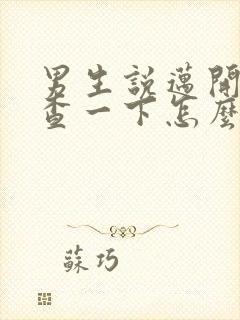 男生說邁開
查一下怎麼
蘇巧